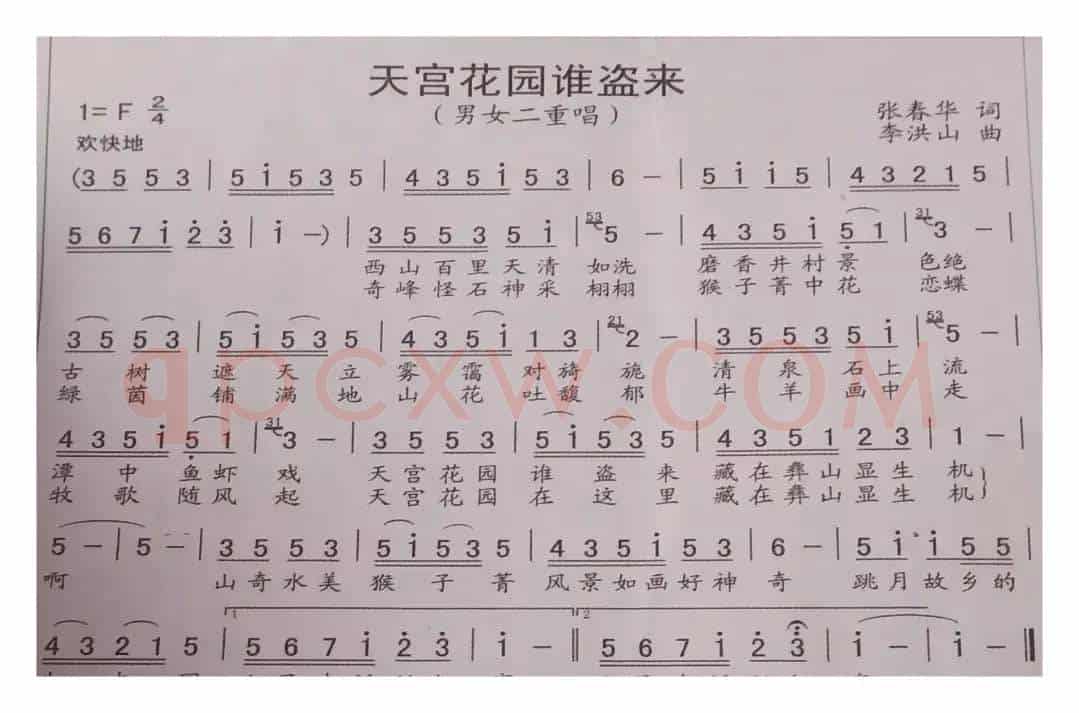 天宫花园谁盗来
(男女二重唱)
1= F 2/4
张春华 词
李洪山 曲
欢快地
(3 5 5 3 | 5 i 5 3 5 | 4 3 5 i 5 3 | 6 - | 5 i i 5 | 4 3 2 1 5 |
5 6 7 i 2 3 | i - ) | 3 5 5 3 5 i | 53 5 - | 4 3 5 i 5 1 | 31 3 - |
西山百里天清 如洗 磨香井村景 色绝
奇峰怪石神采 栩栩 猴子菁中花 恋蝶
3 5 5 3 | 5 i 5 3 | 4 3 5 i 1 3 | 21 2 - | 3 5 5 3 5 i | 53 5 - |
古树 遮天立雾霭对旖旎 清泉石上流
绿茵 铺满地山花吐馥郁 牛羊画中走
4 3 5 i 5 1 | 31 3 - | 3 5 5 3 | 5 i 5 3 5 | 4 3 5 1 2 3 | 1 - |
潭中鱼虾戏 天宫花园 谁盗来 藏在彝山显生机
牧歌随风起 天宫花园 在这里 藏在彝山显生机
5 - | 5 - | 3 5 5 3 | 5 i 5 3 5 | 4 3 5 i 5 3 | 6 - | 5 i i 5 5 |
啊 山奇水美 猴子菁 风景如画好神奇 跳月故乡的
1 2
4 3 2 1 5 | 5 6 7 i 2 3 | i - || 5 6 7 i 2 3 | i - i - ||
qpcxw.COM